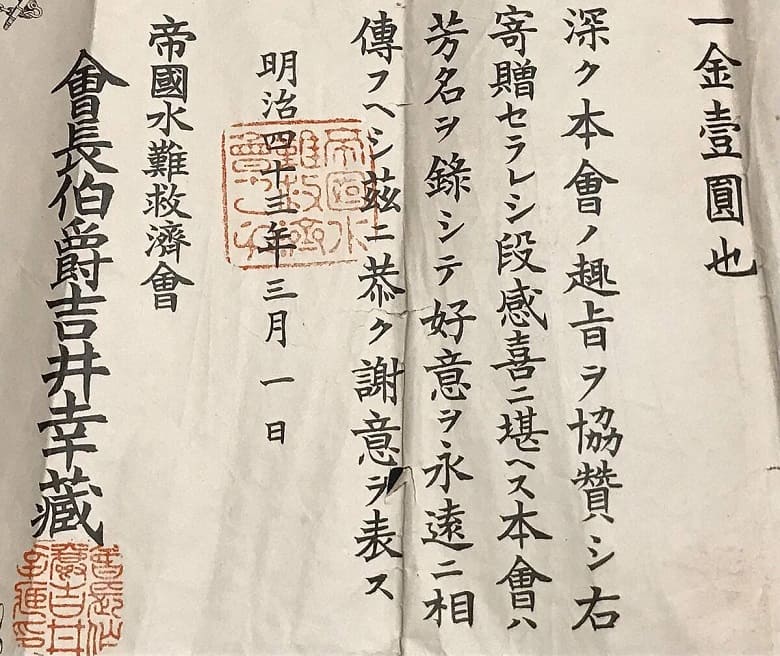 一金壹圓也
深ク本會ノ趣旨ヲ協贊ハシ右
寄贈セラレシ段感喜ニ堪ヘス本會ハ
芳名ヲ錄シテ好意ヲ永遠ニ相
傳フヘシ茲ニ恭ク謝意ヲ表ス
明治四十三年三月一日
帝國水難救濟會
會長伯爵吉井幸藏
帝國水
難救濟
會之
會長伯
爵吉井
幸藏印